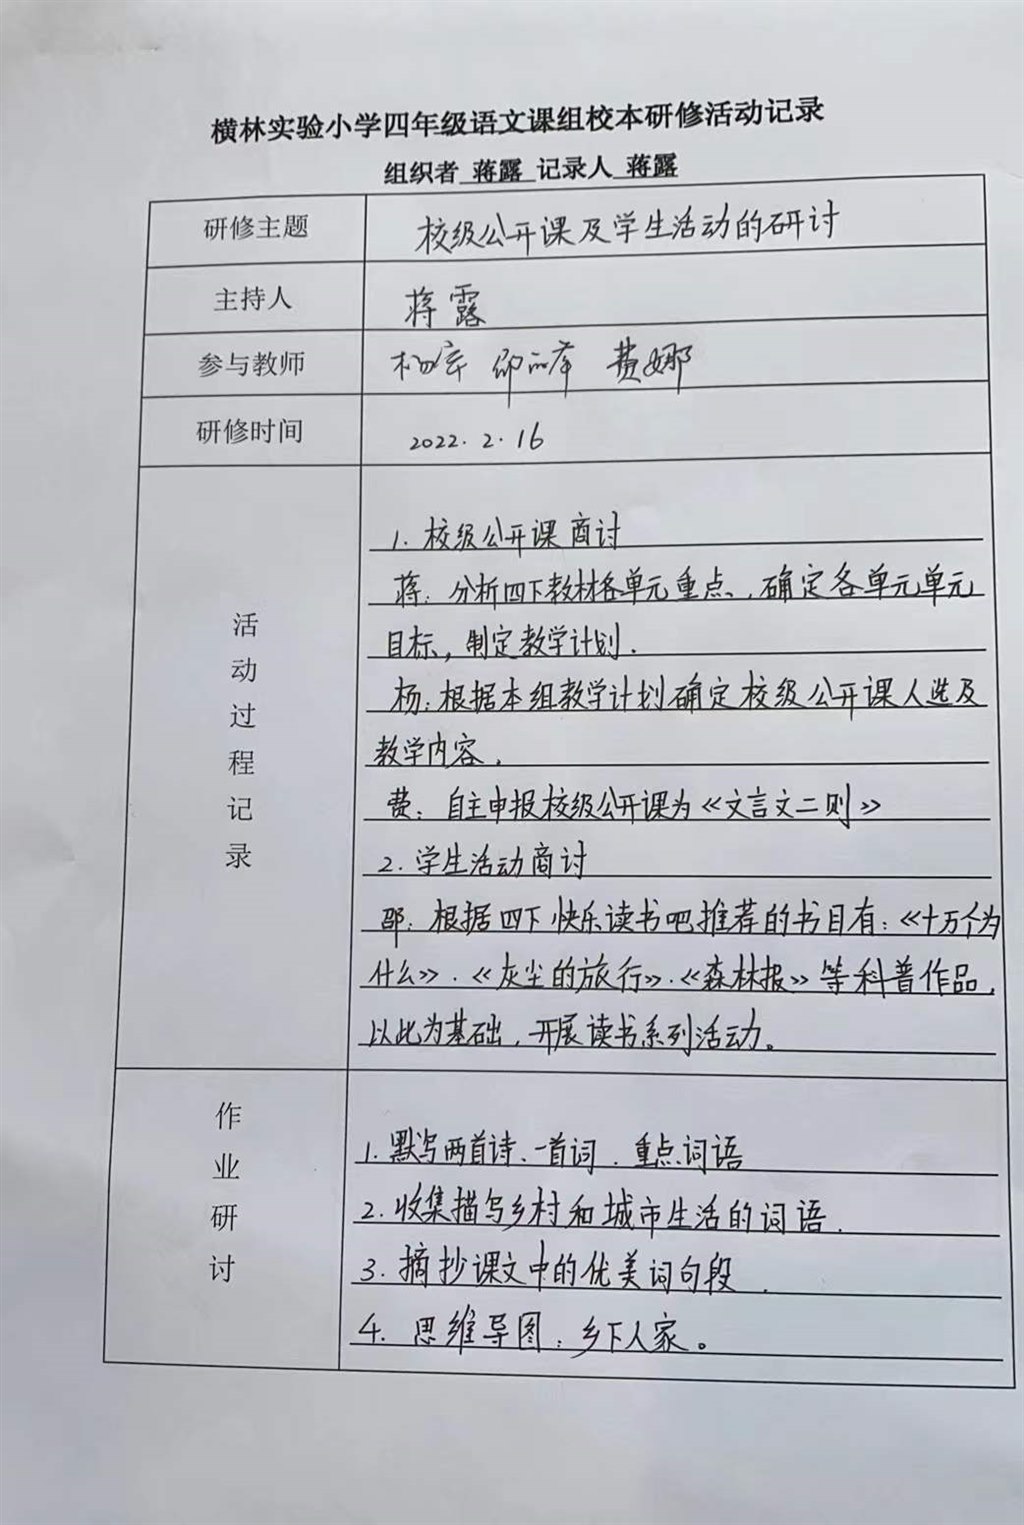 横林实验小学四年级语文课组校本研修活动记录
组织者 蒋露 记录人 蒋露
研修主题 校级公开课及学生活动的研讨
主持人 蒋露
参与教师 费娜
研修时间 2022.2.16
活动过程记录
1. 校级公开课商讨
蒋：分析四下教材各单元重点，确定各单元单元
目标，制定教学计划．
杨：根据本组教学计划确定校级公开课人选及
教学内容．
费：自主申报校级公开课为《文言文二则》
2. 学生活动商讨
邵：根据四下快乐读书吧推荐的书目有：《十万个为
什么》．《灰尘的旅行》．《森林报》等科普作品，
以此为基础，开展读书系列活动。
作业研讨
1. 默写两首诗、一首词．重点词语
2. 收集描写乡村和城市生活的词语．
3. 摘抄课文中的优美词句段．
4. 思维导图：乡下人家。